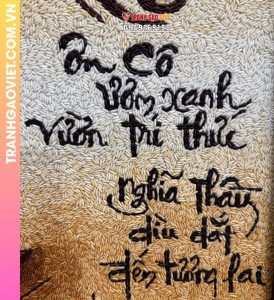 TRANHGAOVIET.COM.VN
Ơn Cô
ươm xanh
vườn tri thức
nghĩa Thầy
dìu dắt
đến tương lai